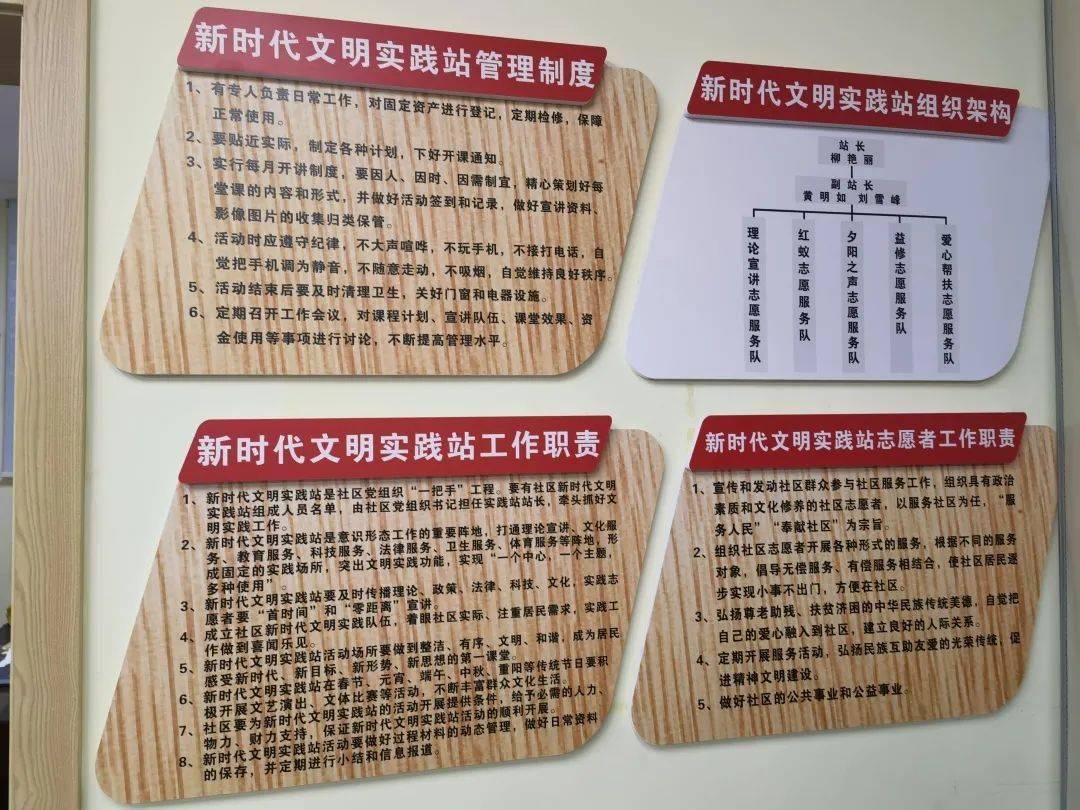 新时代文明实践站管理制度
1、有专人负责日常工作，对固定资产进行登记，定期检修，保障
正常使用。
2、要贴近实际，制定各种计划，下好开课通知。
3、实行每月开讲制度，要因人、因时、因需制宜，精心策划好每
堂课的内容和形式，并做好活动签到和记录，做好宣讲资料、
影像图片的收集归类保管。
4、活动时应遵守纪律，不大声喧哗，不玩手机，不接打电话，自
觉把手机调为静音，不随意走动，不吸烟，自觉维持良好秩序。
5、活动结束后要及时清理卫生，关好门窗和电器设施。
6、定期召开工作会议，对课程计划、宣讲队伍、课堂效果、资
金使用等事项进行讨论，不断提高管理水平。
新时代文明实践站组织架构
站长
柳艳丽
副站长
黄明如 刘雪峰
理论宣讲志愿服务队
红蚁志愿服务队
夕阳之声志愿服务队
益修志愿服务队
爱心帮扶志愿服务队
新时代文明实践站工作职责
1、新时代文明实践站是社区党组织“一把手”工程。要有社区新时代文明
实践站组成人员名单，由社区党组织书记担任实践站站长，牵头抓好文
明实践工作。
2、新时代文明实践站是意识形态工作的重要阵地，打通理论宣讲、文化服
务、教育服务、科技服务、法律服务、卫生服务、体育服务等阵地，形
成固定的实践场所，突出文明实践功能，实现“一个中心，一个主题，
多种使用”
3、新时代文明实践站要及时传播理论、政策、法律、科技、文化，实践志
愿者要“首时间”和“零距离”宣讲。
4、成立社区新时代文明实践队伍，着眼社区实际、注重居民需求，实践工
作做到喜闻乐见。
5、新时代文明实践站活动场所要做到整洁、有序、文明、和谐，成为居民
感受新时代、新目标、新形势、新思想的第一课堂。
6、新时代文明实践站在春节、元宵、端午、中秋、重阳等传统节日要积
极开展文艺演出、文体比赛等活动，不断丰富群众文化生活。
7、社区要为新时代文明实践站的活动开展提供条件，给予必需的人力、
物力、财力支持，保证新时代文明实践站活动的顺利开展。
8、新时代文明实践站活动要做好过程材料的动态管理，做好日常资料
的保存，并定期进行小结和信息报道。
新时代文明实践站志愿者工作职责
1、宣传和发动社区群众参与社区服务工作，组织具有政治
素质和文化修养的社区志愿者，以服务社区为任，“服
务人民”“奉献社区”为宗旨。
2、组织社区志愿者开展各种形式的服务，根据不同的服务
对象，倡导无偿服务、有偿服务相结合，使社区居民逐
步实现小事不出门，方便在社区。
3、弘扬尊老助残、扶贫济困的中华民族传统美德，自觉把
自己的爱心融入到社区，建立良好的人际关系。
4、定期开展服务活动，弘扬民族互助友爱的光荣传统，促
进精神文明建设。
5、做好社区的公共事业和公益事业。